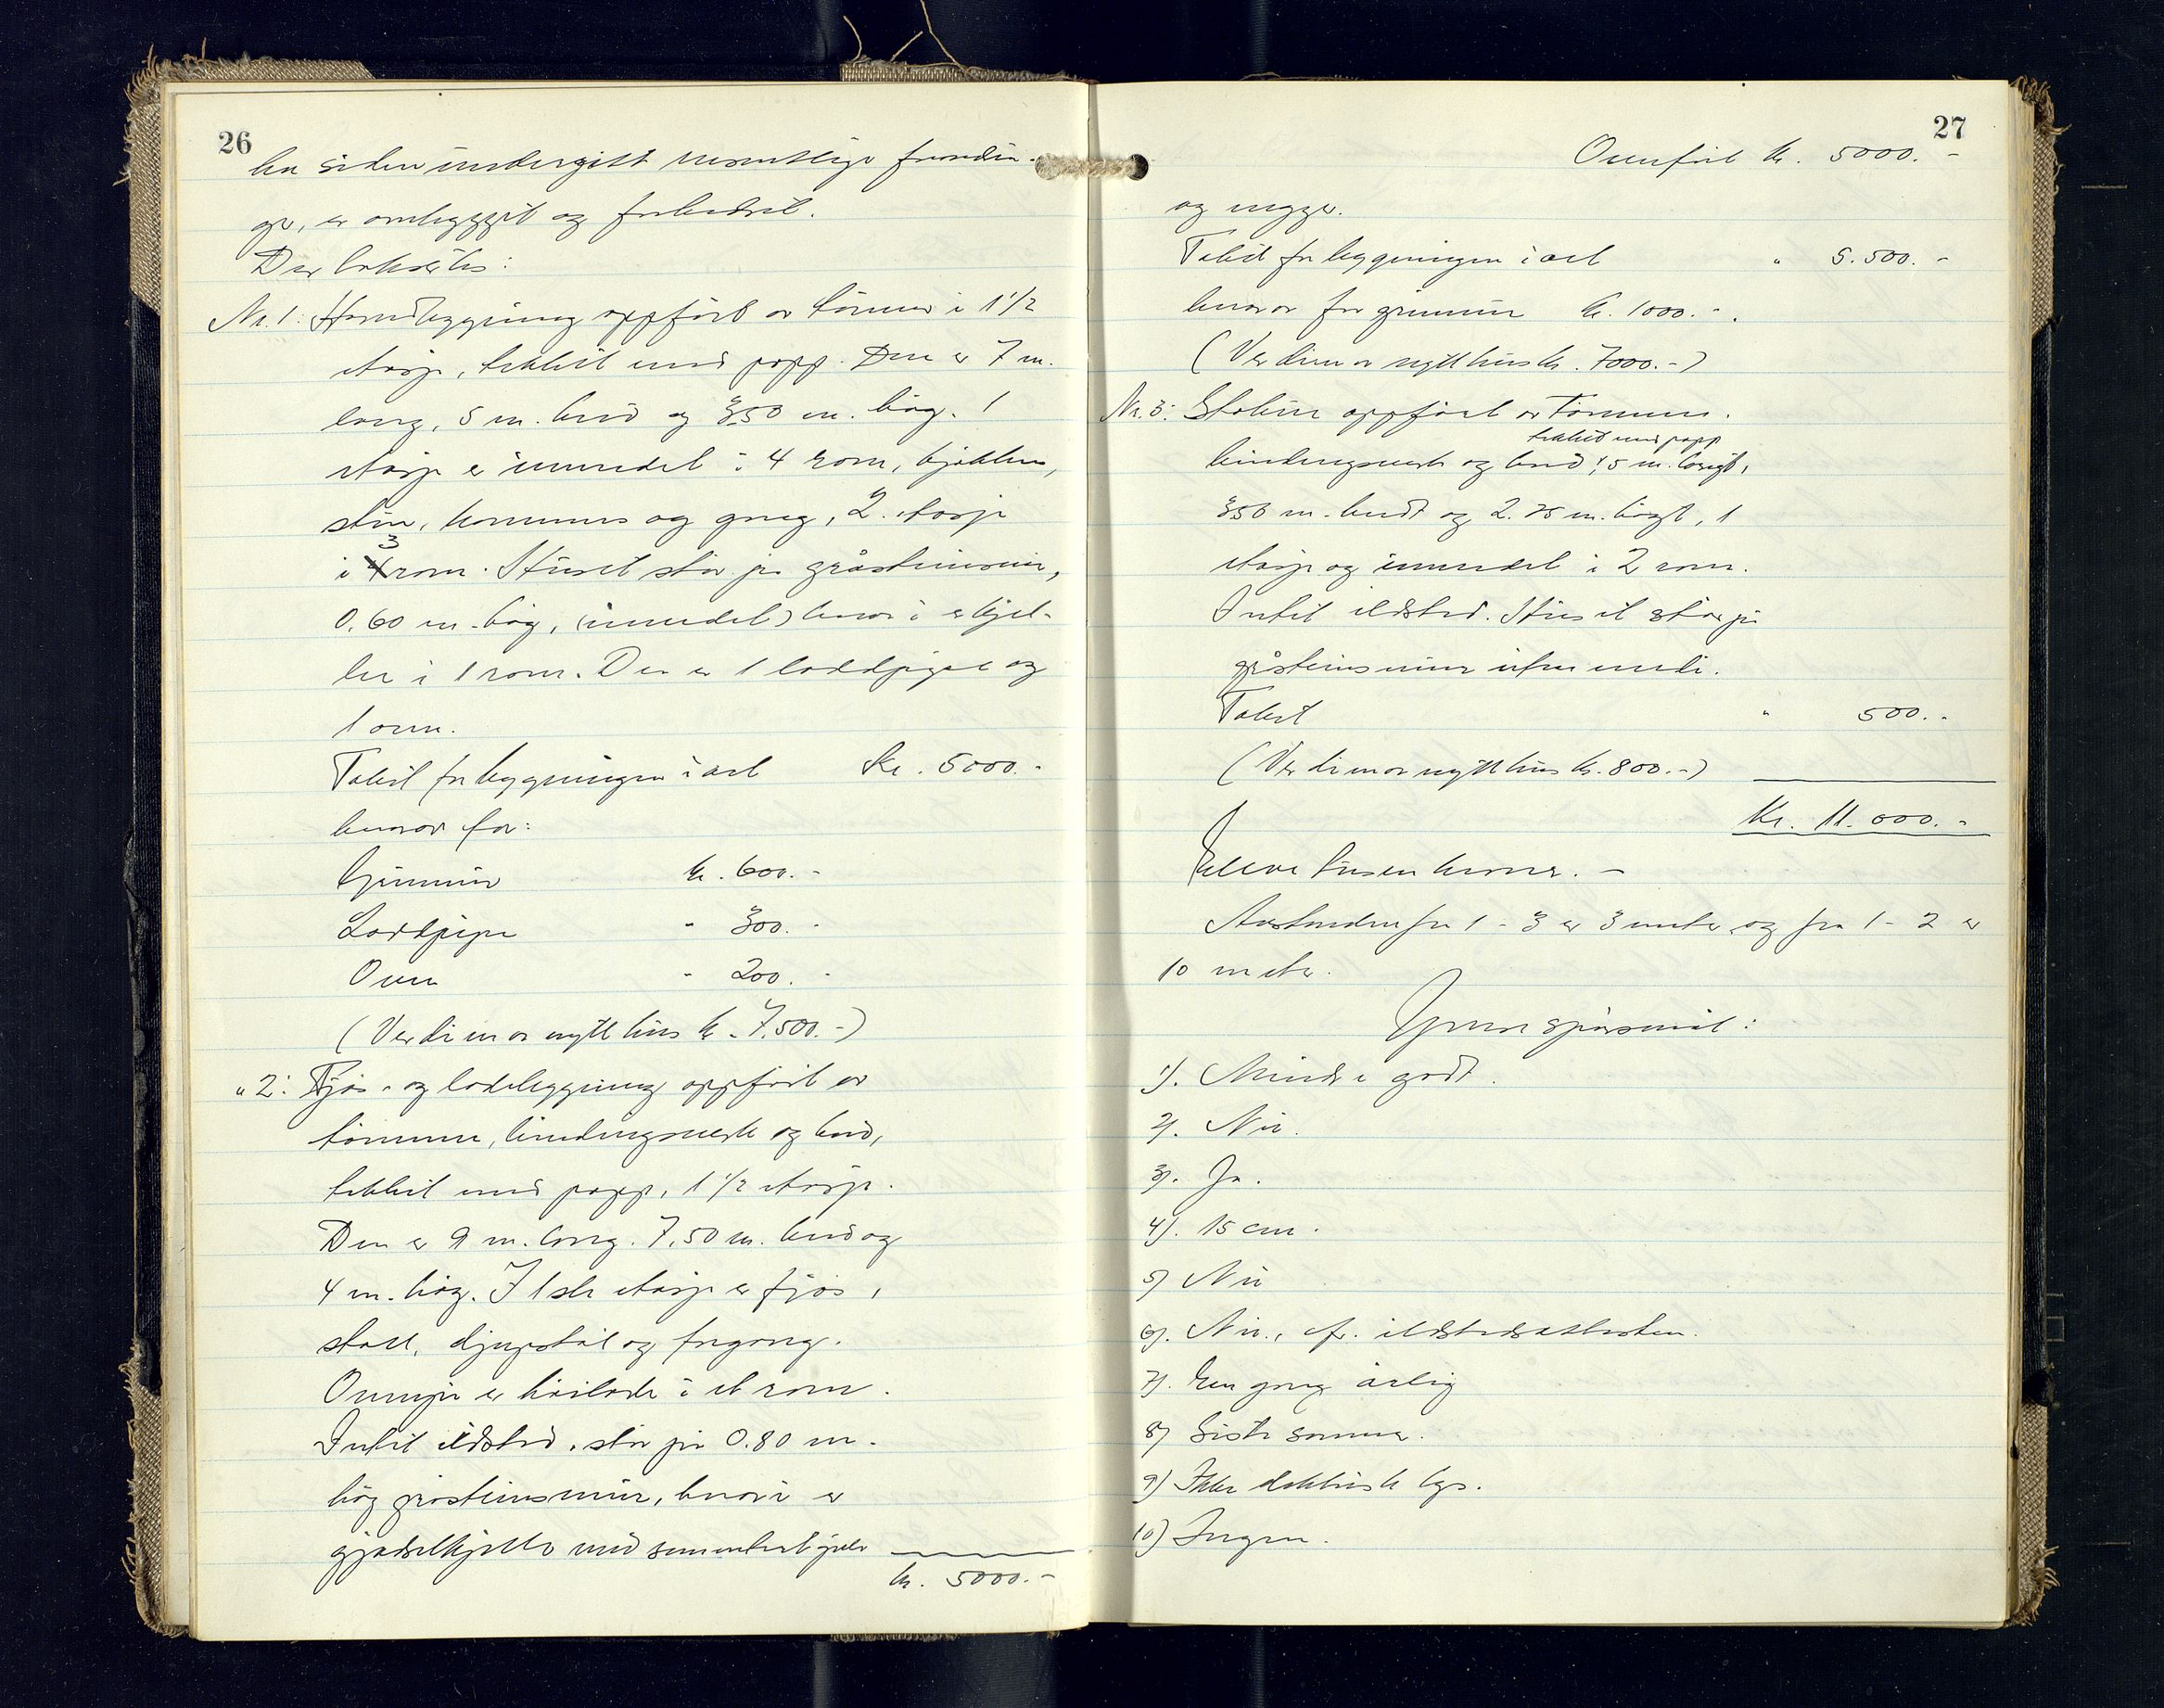 26
ha siden undergitt vesentlige forandrin-
ger, er ombygget og forbedret.
Der takseres:
Nr. 1: Hovedbygning oppført av tømmer i 1 1/2
etasje, tekket med papp. Den er 7 m.
lang, 5 m. bred og 3.50 m. høg. 1
etasje er innredet i 4 rom, kjøkken,
stue, kammers og gang, 2. etasje
i 3 rom. Huset står på gråsteinsmur,
0.60 m. høg, (innredet) hvori er kjel-
ler i 1 rom. Der er 1 loddpipe og
1 ovn.
Takst for bygningen i alt kr. 5000.-
herav for:
Grunnmur kr. 600.-
Loddpipe " 300.-
Ovn " 200.-
(Verdien av nytt hus kr. 7.500.-)
" 2: Fjøs- og ladebygning oppført av
tømmer, bindingsverk og bord,
tekket med papp, 1 1/2 etasje.
Den er 9 m. lang. 7.50 m. bred og
4 m. høg. I 1ste etasje er fjøs,
stall, djupstål og forgang.
Ovenpå er høilade i et rom.
Intet ildsted, står på 0.80 m.
høg gråsteinsmur, hvori er
gjødselkjeller med sementert gulv
kr. 5000.-
27
Overført kr. 5000.-
og vegger.
Takst for bygningen i alt " 5.500.-
herav for grunnmur kr. 1000.-.
(Verdien av nytt hus kr. 7000.-)
Nr. 3: Stabur oppført av Tømmer.
tekket med papp
bindingsverk og bord, 5 m. langt,
3.50 m. bredt og 2.75 m. høgt, 1
etasje og innredet i 2 rom.
Intet ildsted. Huset står på
gråsteinsmur uten verdi.
Takst " 500.-
(Verdien av nytt hus kr. 800.-)
Kr. 11.000.-
Elleve tusen kroner.-
Avstanden fra 1 - 3 er 3 meter og fra 1 - 2 er
10 meter.
spørsmål:
1). Mindre godt.
2). Nei.
3). Ja.
4). 15 cm.
5) Nei
6). Nei., cfr. ildstedsattesten.
7). En gang årlig
8) Siste sommer.
9) Ikke elektrisk lys.
10) Ingen.